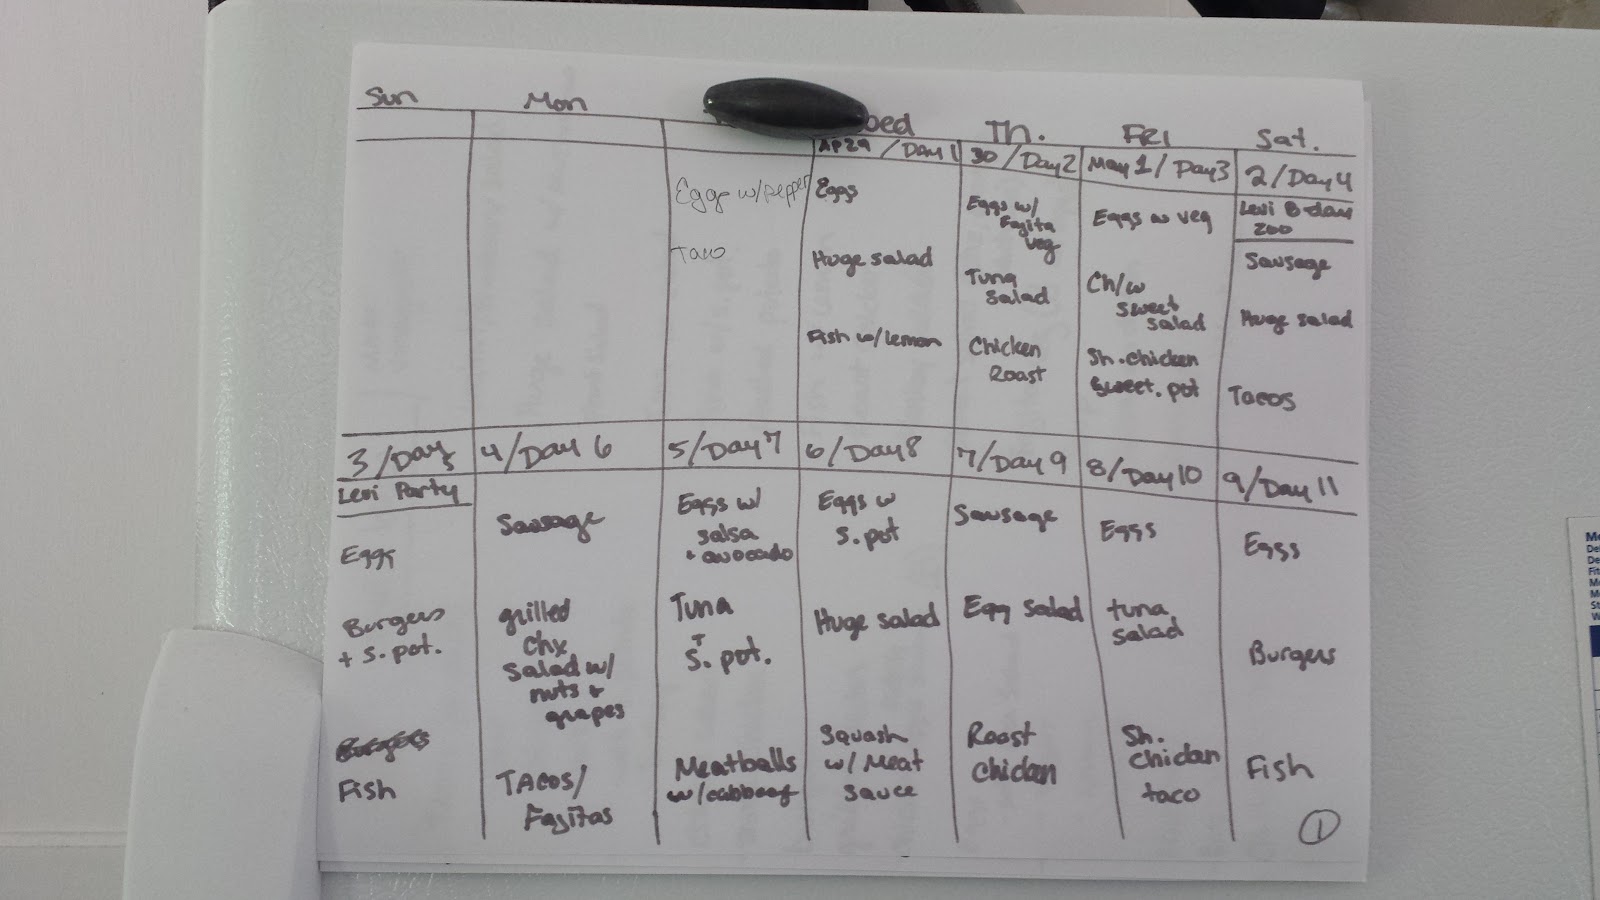 Sun
Mon
Th.
FRI
Sat.
AP 29 / Day 1
30 / Day 2
May 1 / Day 3
2 / Day 4
Eggs w/pepper
Taco
Eggs
Huge salad
Fish w/lemon
Eggs w/
Fajita
veg
Tuna
Salad
Chicken
Roast
Eggs w veg
Ch/w
sweet
salad
Sh. chicken
Sweet. pot
Levi B-day
zoo
Sausage
Huge salad
Tacos
3 / Day 5
4 / Day 6
5 / Day 7
6 / Day 8
7 / Day 9
8 / Day 10
9 / Day 11
Levi Party
Eggs
Burgers
+ S. pot.
Burgers
Fish
Sausage
grilled
chx
salad w/
nuts +
grapes
TACOS/
Fajitas
Eggs w/
salsa
+ avocado
Tuna
+
S. pot.
Meatballs
w/
Eggs w
S. pot
Huge salad
Squash
w/ Meat
sauce
Sausage
Egg salad
Roast
Chicken
Eggs
tuna
salad
Sh.
Chicken
taco
Eggs
Burgers
Fish
1